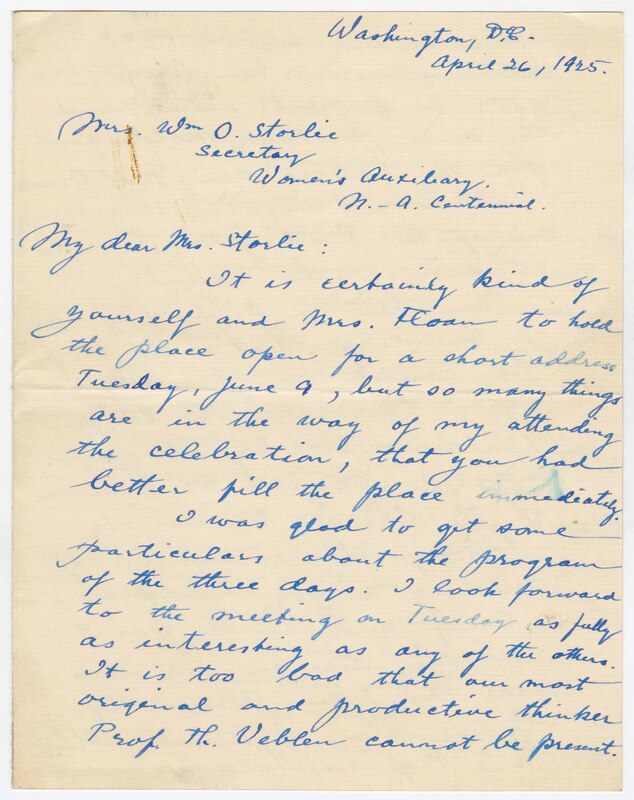 Washington, D.C.
April 26, 1925.
Mrs. Wm O. Storlie
Secretary
Women's Auxiliary.
N.-A. Centennial.
My dear Mrs. Storlie:
It is certainly kind of
yourself and Mrs. Floan to hold
the place open for a short address
Tuesday, June 9, but so many things
are in the way of my attending
the celebration, that you had
better fill the place immediately.
I was glad to get some
particulars about the program
of the three days. I look forward
to the meeting on Tuesday as fully
as interesting as any of the others.
It is too bad that our most
original and productive thinker
Prof. Th. Veblen cannot be present.